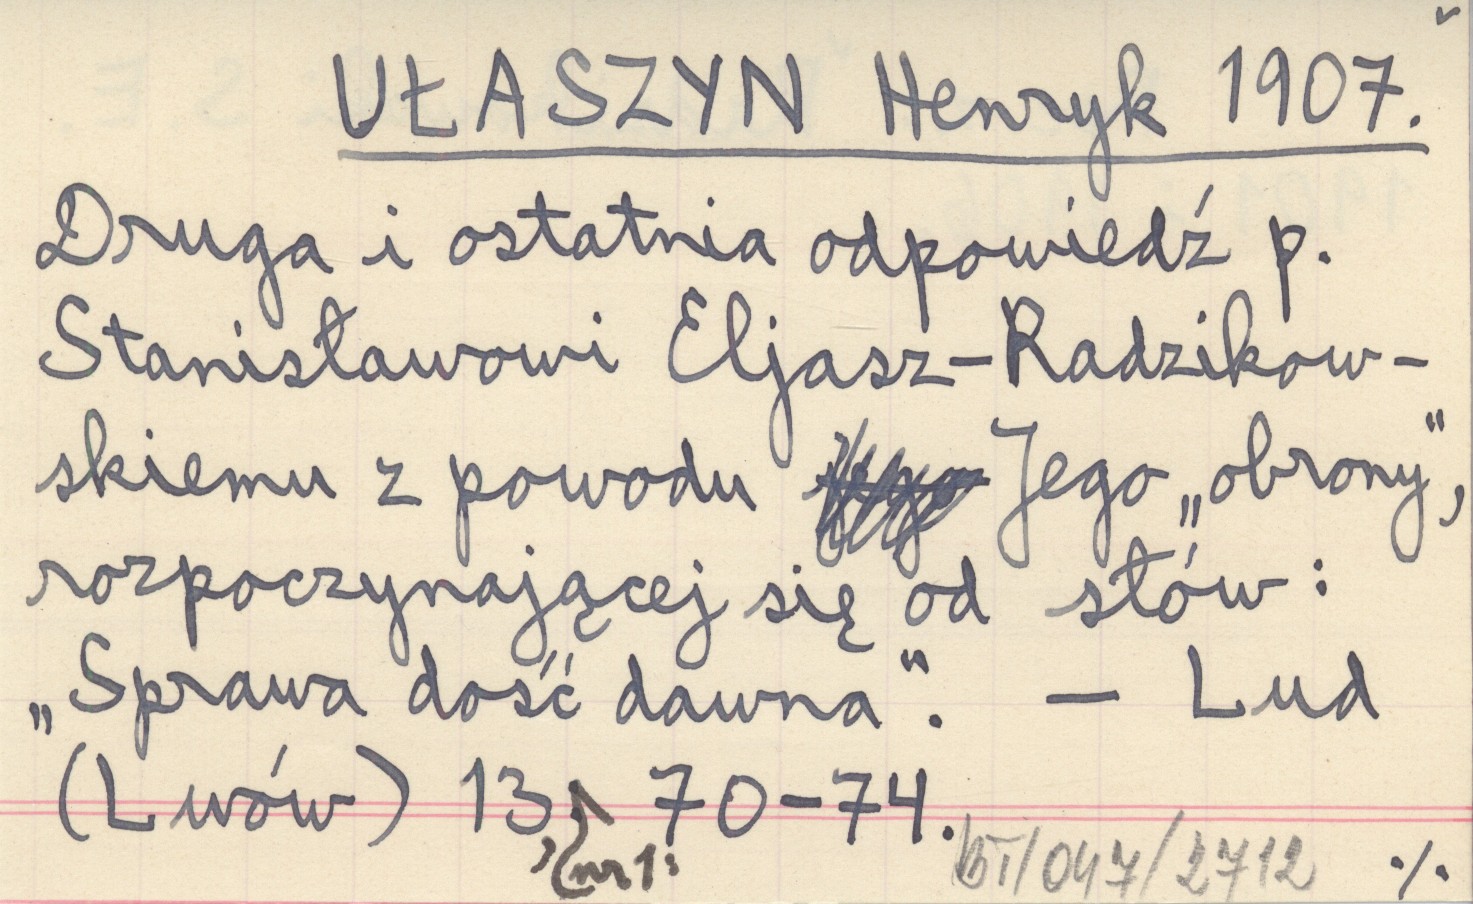 UŁASZYN Henryk 1907.
Druga i ostatnia odpowiedź p.
Stanisławowi Eljasz-Radzikow-
skiemu z powodu Jego „obrony”,
rozpoczynającej się od słów:
„Sprawa dość dawna”. — Lud
(Lwów) 13, nr 1: 70-74.
BT/047/2712 ./.